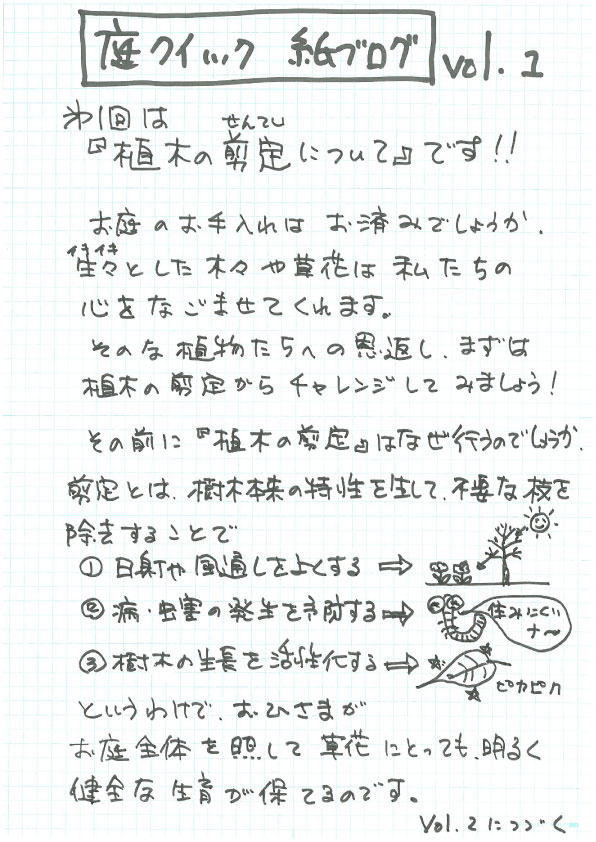 庭クイック 紙ブログ vol.1
第1回は
せんてい
『植木の剪定について』です!!
お庭のお手入れは お済みでしょうか.
イキイキ
生々とした木々や草花は私たちの
心をなごませてくれます。
そのな植物たちへの恩返し、まずは
植木の剪定からチャレンジしてみましょう!
その前に『植木の剪定』はなぜ行うのでしょうか.
剪定とは、樹木本来の特性を生して、不要な枝を
除去することで
① 日射や風通しをよくする ⇨
② 病・虫害の発生を予防する⇨
住みにくい
ナ〜
③ 樹木の生長を活性化する⇨
ピカピカ
というわけで、おひさまが
お庭全体を照して草花にとっても、明るく
健全な生育が保てるのです。
Vol.2につづく